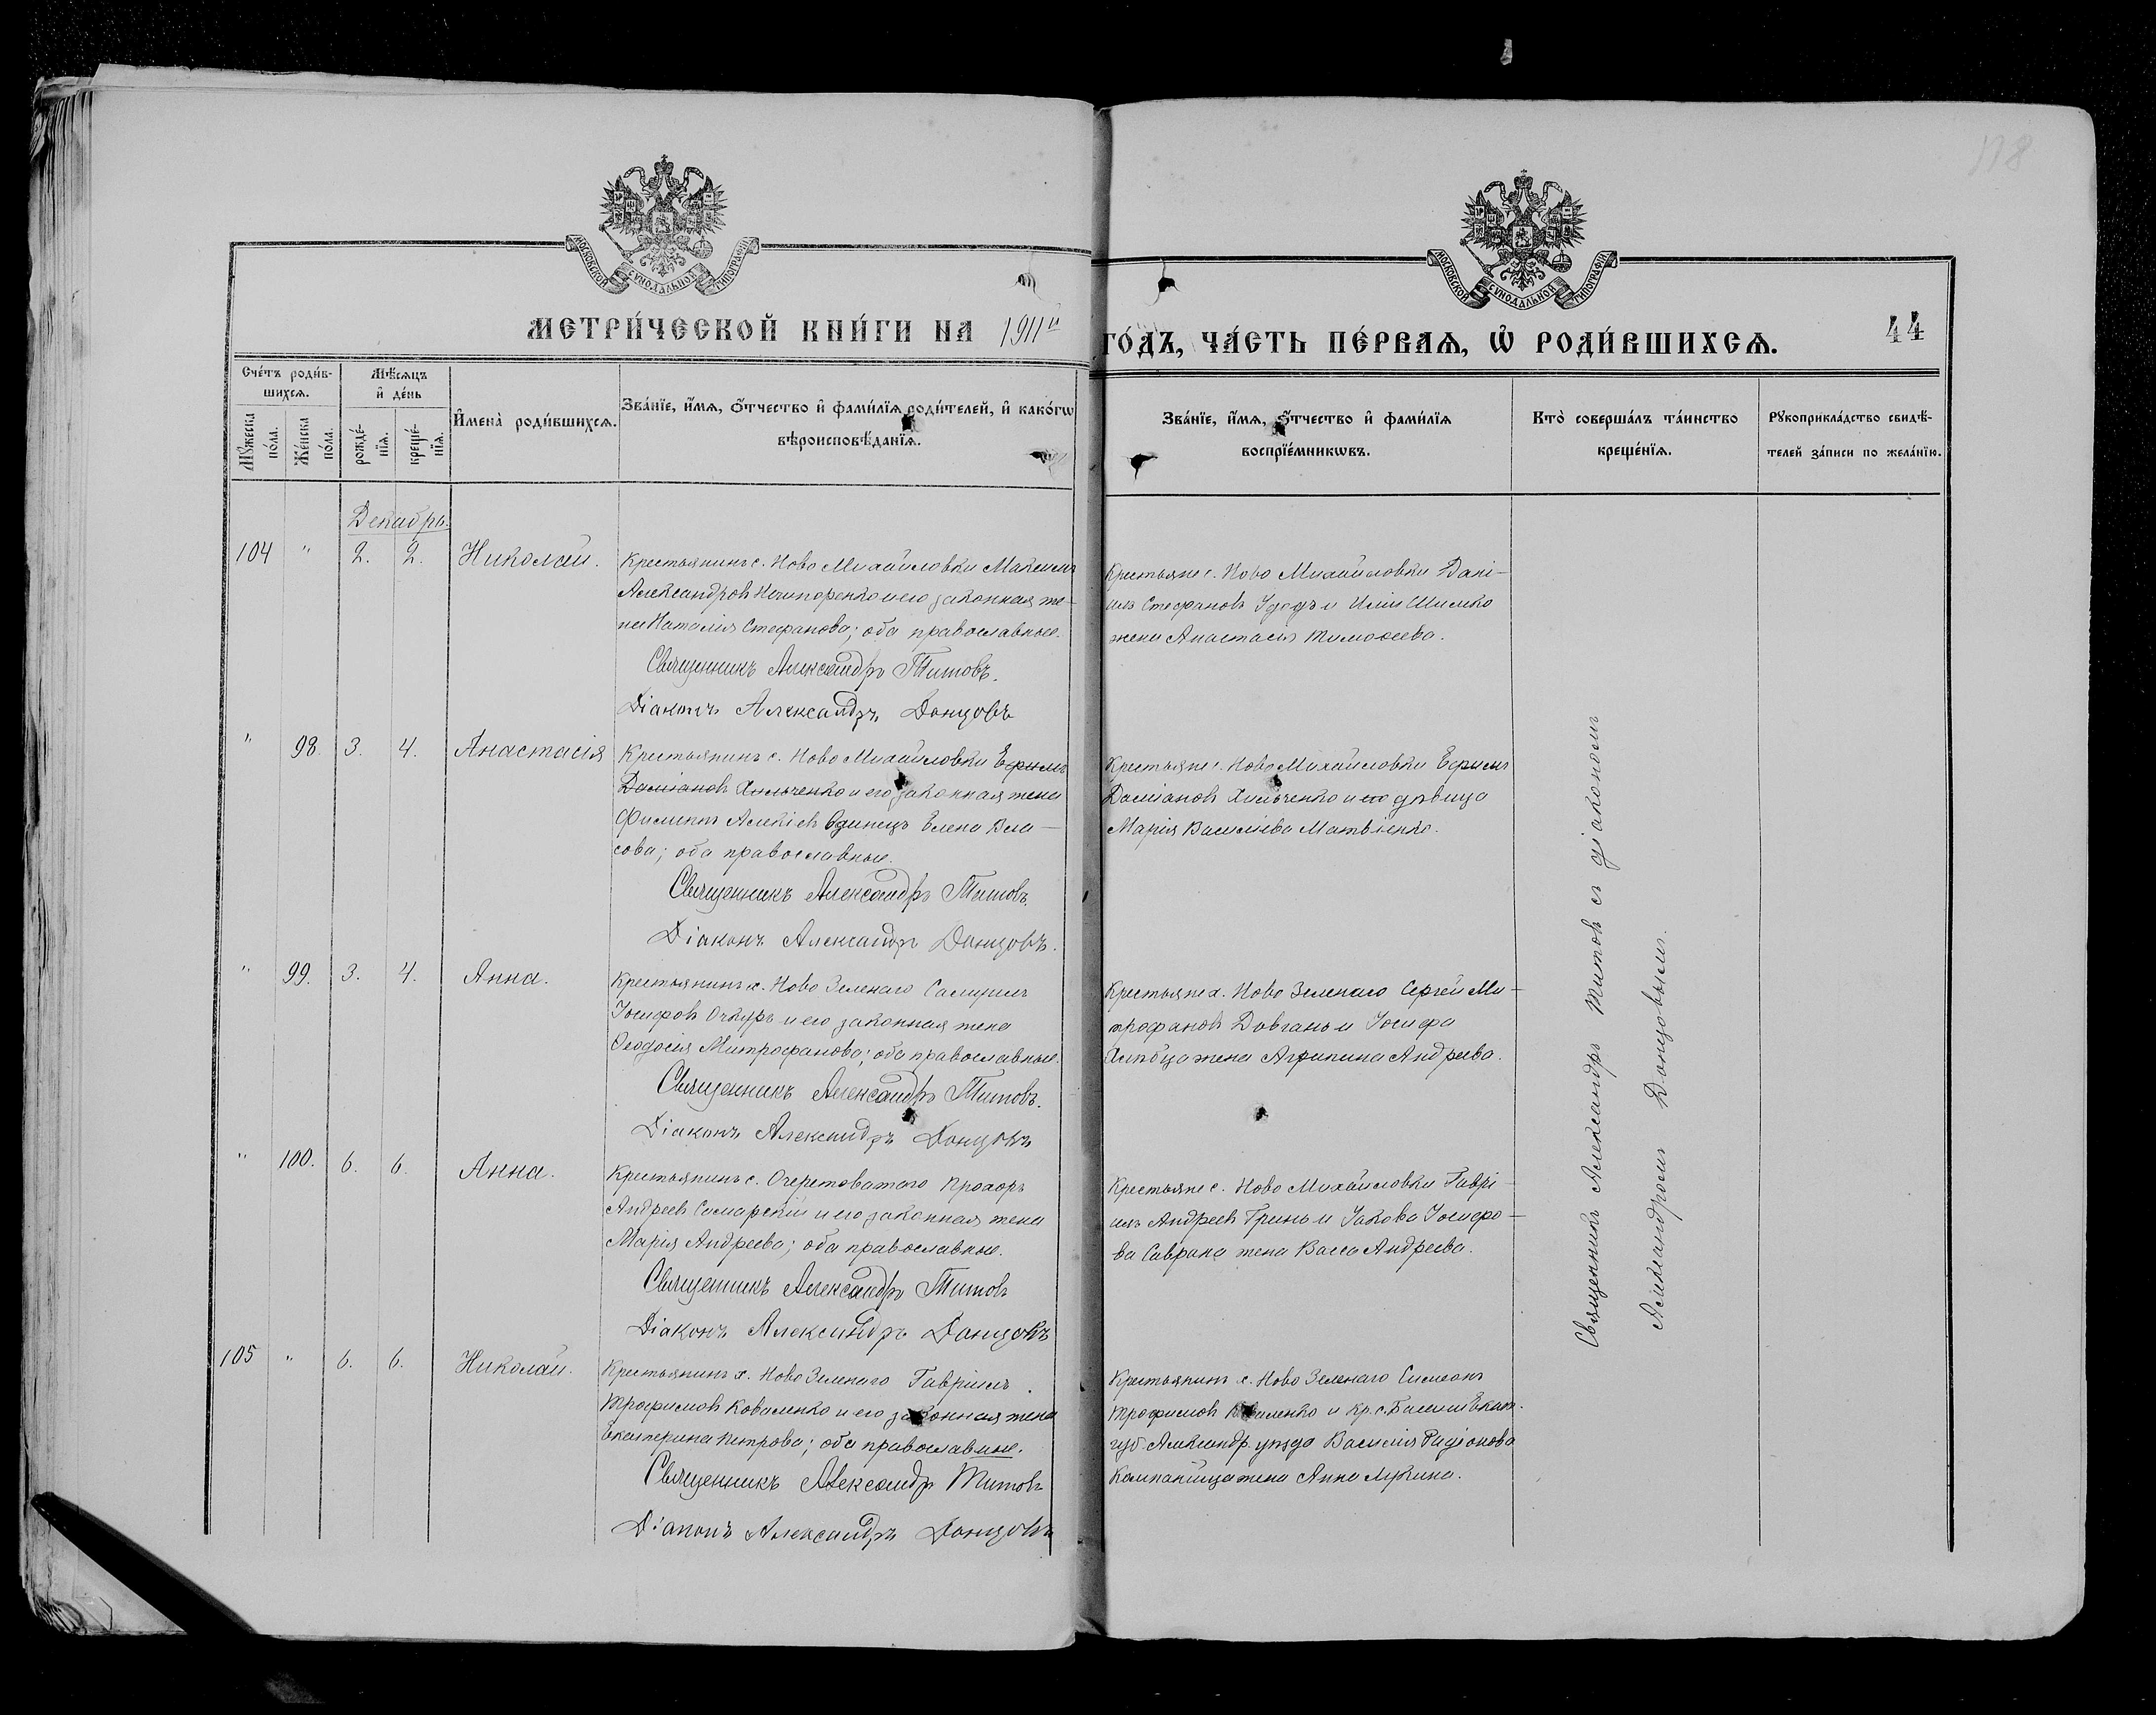 118
МОСКОВСКОЙ СѴНОДАЛЬНОЙ ТИПОГРАФІИ
МОСКОВСКОЙ СѴНОДАЛЬНОЙ ТИПОГРАФІИ
МЕТРИ́ЧЕСКОЙ КНИ́ГИ НА 1911й ГО́ДЪ, ЧА́СТЬ ПЕ́РВАЯ, Ѡ РОДИ́ВШИХСЯ.
44
Сче́тъ роди́в-
шихся.
Мꙋжеска по́ла.
Же́нска по́ла.
Мѣ́сяцъ
и де́нь
рожде́-
нїя.
креще́-
нїя.
Имена̀ роди́вшихся.
Зва́нїе, и́мя, ѻ́тчество и фами́лїя роди́телей, и како́гѡ
вѣроисповѣ́данїя.
Зва́нїе, и́мя, ѻ́тчество и фами́лїя
воспрїе́мникѡвъ.
Кто̀ соверша́лъ та́инство
креще́нїя.
Рꙋкоприкла́дство свидѣ́-
телей за́писи по жела́нїю.
Декабрь.
104 " 2. 2. Николай.
Крестьянинъ с. Ново Михайловки Максимъ
Александровъ Ничипоренко и его законная же-
на Наталія Стефанова; оба православные.
Священникъ Александръ Титовъ.
Діаконъ Александръ Донцовъ
Крестьяне с. Ново Михайловки Дані-
илъ Стефановъ Удодъ и Иліи Шимко
жена Анастасія Тимоѳеева.
" 98. 3. 4. Анастасія
Крестьянинъ с. Ново Михайловки Ефимъ
Даміановъ Хильченко и его законная жена
Филиппъ Алексіевъ Одинецъ Елена Вла-
сова; оба православные.
Священникъ Александръ Титовъ.
Діаконъ Александръ Донцовъ.
Крестьяне с. Ново Михайловки Ефимъ
Даміановъ Хильченко и его дѣвица
Марія Василіева Матвіенко.
" 99. 3. 4. Анна.
Крестьянинъ х. Ново Зеленаго Самуилъ
Іосифовъ Очкуръ и его законная жена
Ѳеодосія Митрофанова; оба православные.
Священникъ Александръ Титовъ.
Діаконъ Александръ Донцовъ
Крестьяне х. Ново Зеленаго Сергей Ми-
трофановъ Довгань и Іосифа
жена Агрипина Андреева.
" 100. 6. 6. Анна.
Крестьянинъ с. Очеретоватаго Прохоръ
Андреевъ Самарскій и его законная жена
Марія Андреева; оба православные.
Священникъ Александръ Титовъ
Діаконъ Александръ Донцовъ
Крестьяне с. Ново Михайловки Гаврі-
илъ Андреевъ Гринь и Іакова Іосифо-
ва Саврана жена Васса Андреева.
105 " 6. 6. Николай.
Крестьянинъ х. Ново Зеленаго Гавріилъ
Трофимовъ Коваленко и его законная жена
Екатерина Петрова; оба православные.
Священникъ Александръ Титовъ
Діаконъ Александръ Донцовъ
Крестьянинъ х. Ново Зеленаго Симеонъ
Трофимовъ Коваленко и Кр. с. Екат.
губ Александр. уѣзда Василія Радіонова
Компанійца жена Анна Лукина.
Священникъ Александръ Титовъ съ діакономъ
Александромъ Донцовымъ.